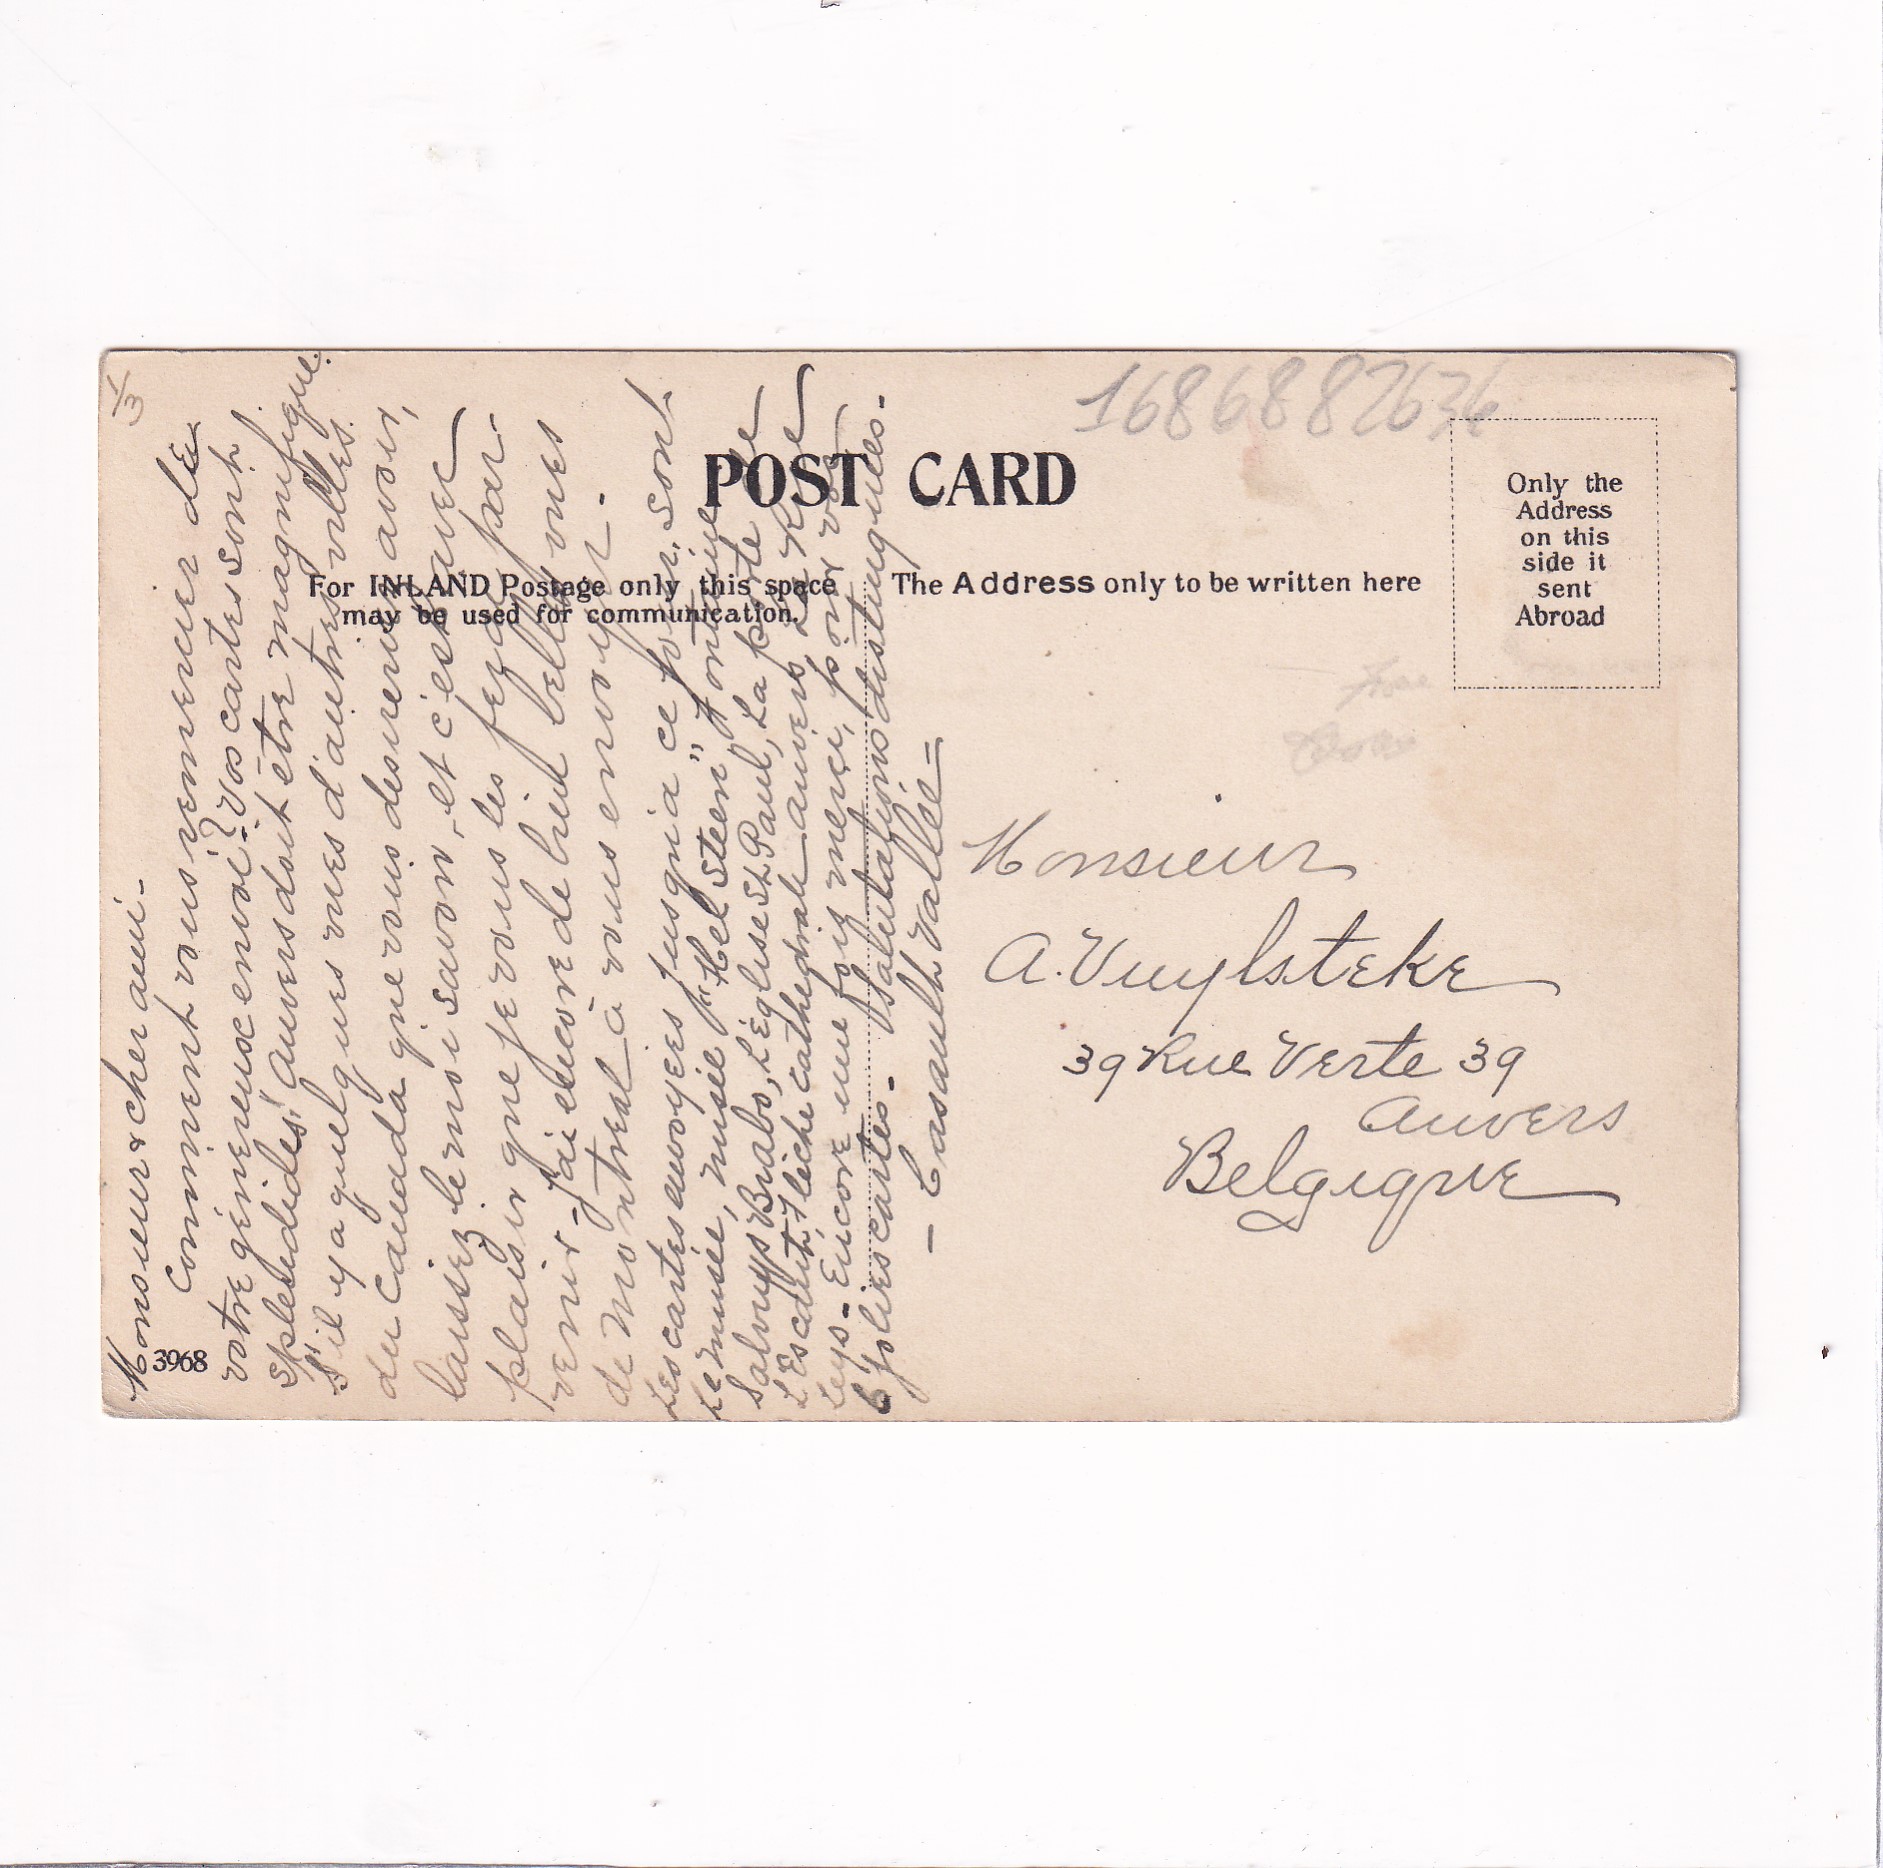 1/3
1686882636
POST CARD
For INLAND Postage only this space
may be used for communication.
The Address only to be written here
Only the
Address
on this
side it
sent
Abroad
Monsieur & cher ami-
Comment vous remercier de
votre généreux envoi? Vos cartes sont
splendides! Anvers doit être magnifique.
S'il y a quelques vues d'autres villes
du Canada que vous desirerez avoir,
laissez le moi savoir, et c'est avec
plaisir que je vous les ferai par-
venir - J'ai encore de bien belles vues
de Montreal à vous envoyer.
Les cartes envoyées jusqu'à ce jour, sont
Le musée, musée "Het Steen", Fontaine
Brabo, L'Église St Paul, La porte de
L'Escaut, Flèche cathédrale anvers, La Rue
Leys - Encore une fois merci, pour vos
6 jolies cartes. - Salutations distinguées.
- Casault Vallée -
3968
Monsieur
A. Vuylsteke
39 Rue Verte 39
Anvers
Belgique